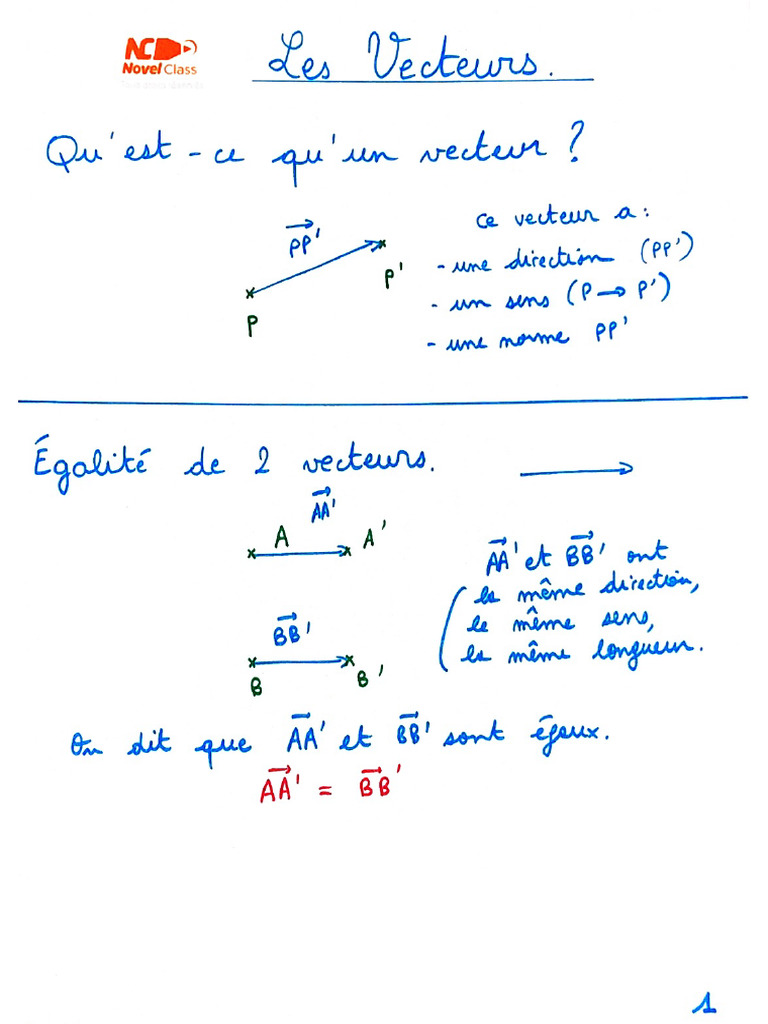 NC
NovelClass
Les Vecteurs.
Qu'est-ce qu'un vecteur ?
PP'
P
P'
ce vecteur a :
- une direction (PP')
- un sens (P → P')
- une norme PP'
Égalité de 2 vecteurs.
AA'
A
A'
BB'
B
B'
AA' et BB' ont
la même direction,
le même sens,
la même longueur.
On dit que AA' et BB' sont égaux.
AA' = BB'
1